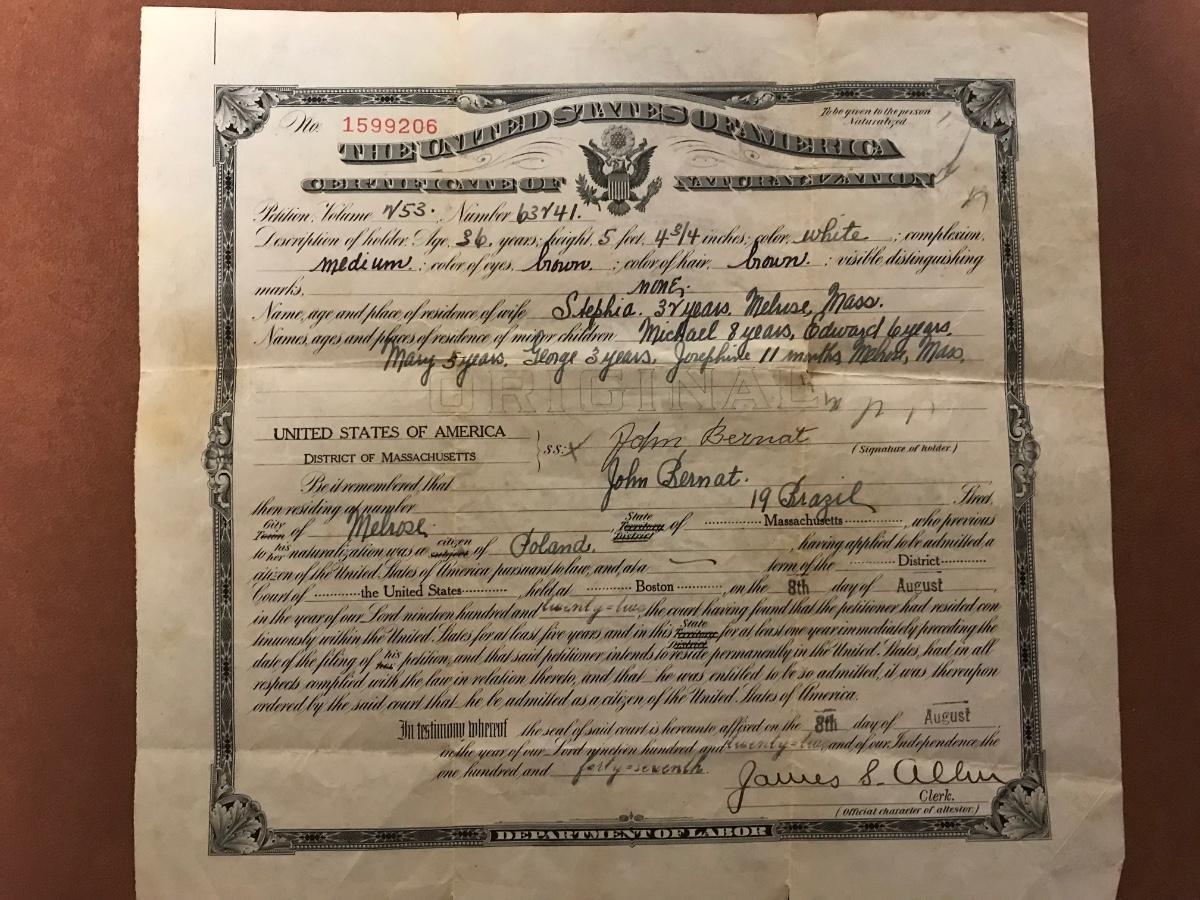 To be given to the person
Naturalized.
No. 1599206
THE UNITED STATES OF AMERICA
CERTIFICATE OF NATURALIZATION
Petition, Volume 253. Number 63241.
Description of holder. Age, 36, years; height, 5 feet, 4 3/4 inches; color, white; complexion,
medium; color of eyes, brown; color of hair, brown.; visible distinguishing
marks, none;
Name, age and place of residence of wife Stephia. 32 years, Melrose, Mass.
Names, ages and places of residence of minor children Michael 8 years, Edward 6 years,
Mary 5 years, George 3 years, Josephine 11 months, Melrose, Mass.
ORIGINAL
UNITED STATES OF AMERICA
DISTRICT OF MASSACHUSETTS
SS: x John Bernat
(Signature of holder.)
Be it remembered, that John Bernat.
then residing at number 19 Brazil Street,
City Town of Melrose, State Territory District of Massachusetts, who previous
to his her naturalization was a citizen subject of Poland, having applied to be admitted a
citizen of the United States of America pursuant to law, and at a — term of the District
Court of the United States held at Boston, on the 8th day of August
in the year of our Lord nineteen hundred and twenty-two, the court having found that the petitioner had resided con
tinuously within the United States for at least five years and in this State Territory District for at least one year immediately preceding the
date of the filing of his petition, and that said petitioner intends to reside permanently in the United States, had in all
respects complied with the law in relation thereto, and that he was entitled to be so admitted, it was thereupon
ordered by the said court that he be admitted as a citizen of the United States of America.
In testimony whereof the seal of said court is hereunto affixed on the 8th day of August
in the year of our Lord nineteen hundred and twenty-two, and of our Independence the
one hundred and forty-seventh.
James S. Allen
Clerk.
(Official character of attestor.)
DEPARTMENT OF LABOR